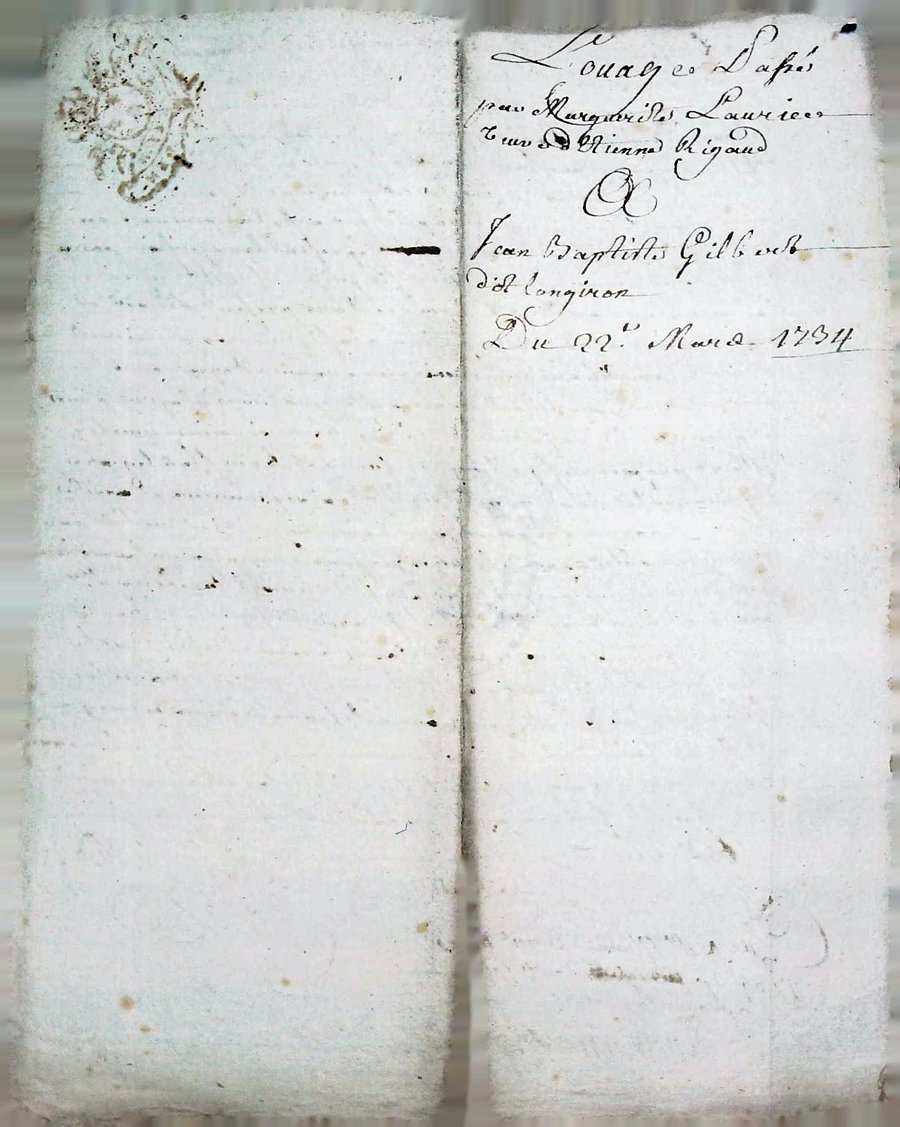 Louage Passé
par Marguerite Laurice
veuve d'Etienne Rigaud
A
Jean Baptiste Gilbert
dit longiron
Du 22e. Mars 1734